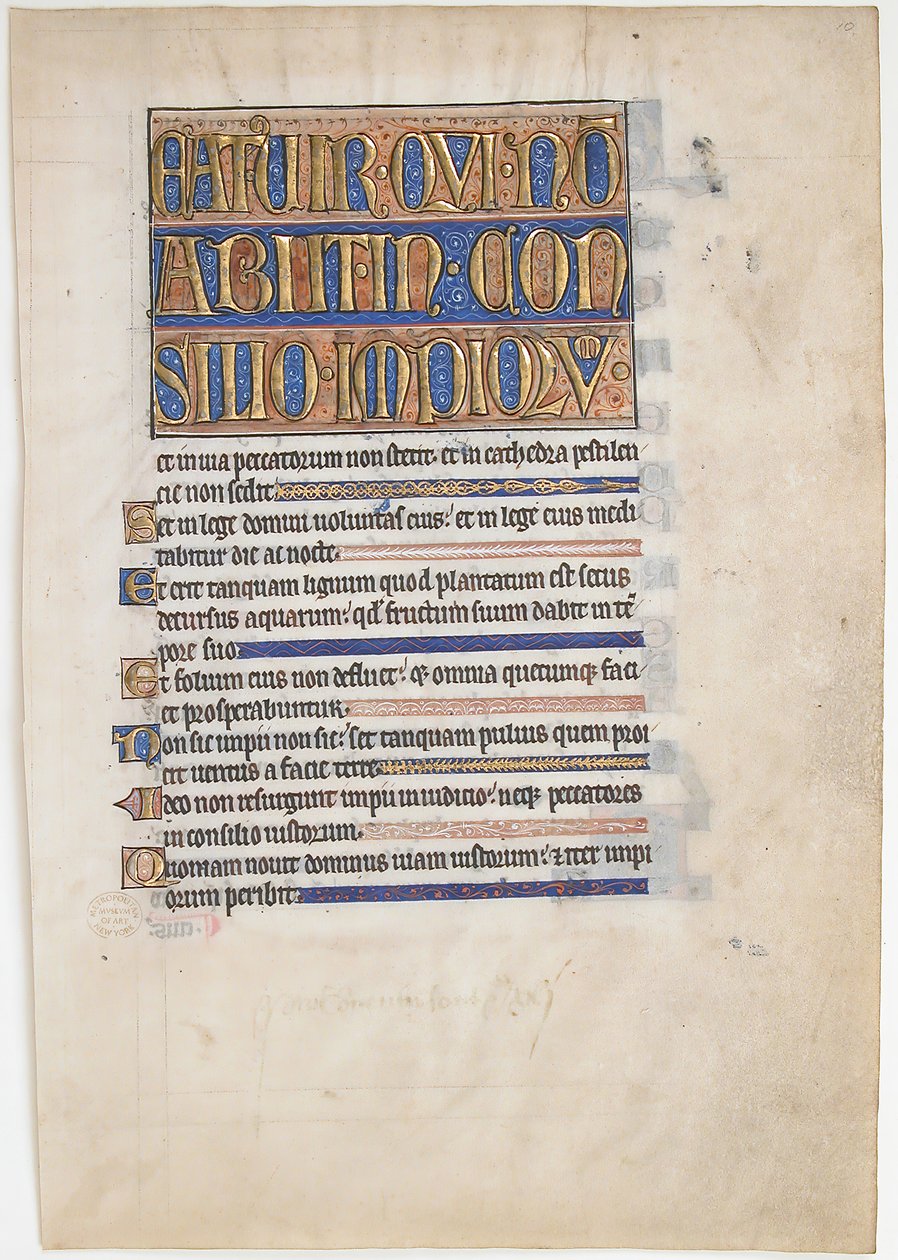 EATUIR·QVI·NŌ
ABIIT·IN·CON
SILIO·IMPIOꝜV·
et in uia peccatorum non stetit· et in cathedra pestilen
cie non sedit·
Set in lege domini uoluntas eius: et in lege eius medi
tabitur die ac nocte·
Et erit tanquam lignum quod plantatum est secus
decursus aquarum: qđ fructum suum dabit in tē
pore suo·
Et folium eius non defluet: & omnia quecumqꝫ faci
et prosperabuntur·
Non sic impii non sic: set tanquam puluis quem proi
cit uentus a facie terre·
Ideo non resurgunt impii in iudicio: neqꝫ peccatores
in consilio iustorum·
Quoniam nouit dominus uiam iustorum: ⁊ iter impi
orum peribit·
METROPOLITAN
MVSEVM
OF ART
NEW YORK
10